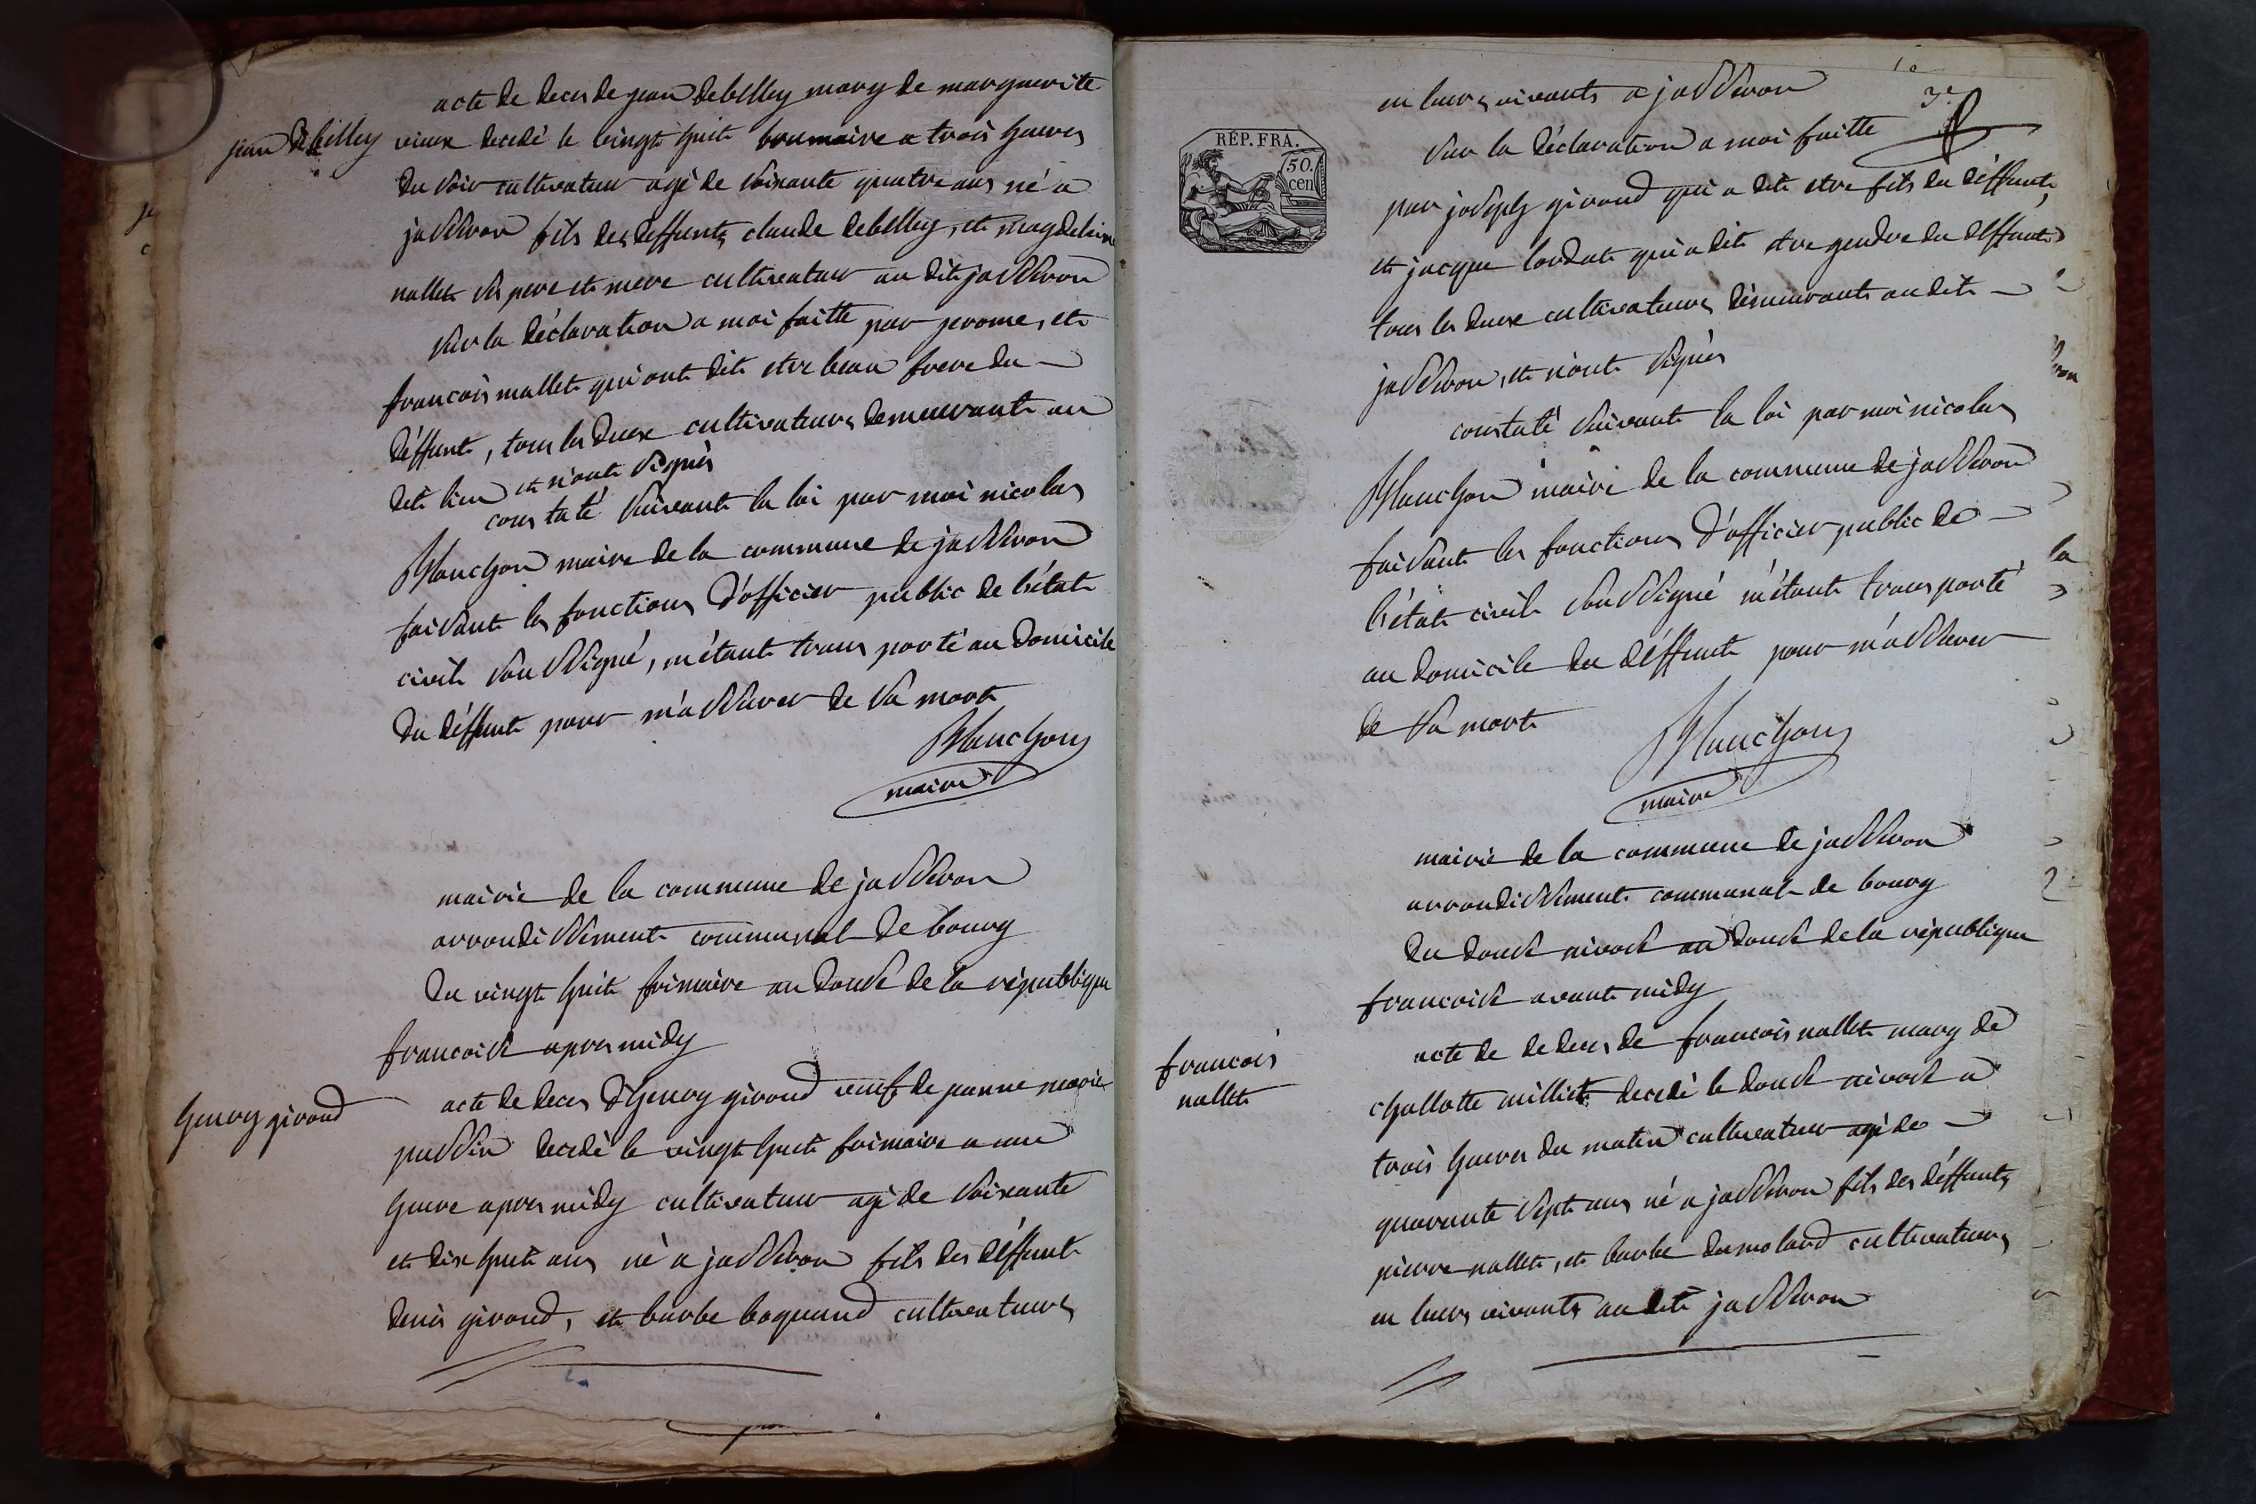 acte de deces de jean debelley mary de marguerite
jean debelley
vieux decedé le vingt huit brumaire a trois heures
du soir cultivateur agé de soixante quatre ans né a
jasseron fils des deffunts claude debelley, et magdelaine
nallet ses pere et mere cultivateur au dit jasseron
sur la déclaration a moi faitte par jerome, et
francois mallet qui ont dit etre beau frere du
déffunt, tous les deux cultivateurs demeurant au
dit lieu et n'ont signés
constaté suivant la loi par moi nicolas
Planchon maire de la commune de jasseron
faisant les fonctions d'officier public de l'état
civil soussigné, m'étant transporté au domicile
du déffunt pour m'assurer de sa mort
Planchon
maire
mairie de la commune de jasseron
arrondissement communal de bourg
du vingt huit frimaire an douse de la république
francoise apres midy
henry giroud
acte de deces d'henry giroud veuf de jeanne marie
decedé le vingt huit frimaire a une
heure apres midy cultivateur agé de soixante
et dix huit ans né a jasseron fils des déffunt
denis giroud, et barbe boquand cultivateurs
en leurs vivants a jasseron
3e
RÉP. FRA.
50.
cen
sur la déclaration a moi faitte
par joseph giroud qui a dit etre fils du déffunt,
et jacque lordat qui a dit etre gendre du déffunt
tous les deux cultivateurs démeurants au dit
jasseron, et n'ont signés
constaté suivant la loi par moi nicolas
Planchon maire de la commune de jasseron
faisant les fonctions d'officier public de
l'état civil soussigné m'étant transporté
au domicile du déffunt pour m'assurer
de sa mort
Planchon
maire
mairie de la commune de jasseron
arrondissement communal de bourg
du douse nivose an douse de la république
francoise avant midy
francois
nallet
acte de deces de francois nallet mary de
challotte milliet decedé le douse nivose a
trois heures du matin cultivateur agé de
quarante sept ans né a jasseron fils des déffunts
pierre nallet, et barbe dumoland cultivateurs
en leurs vivants au dit jasseron